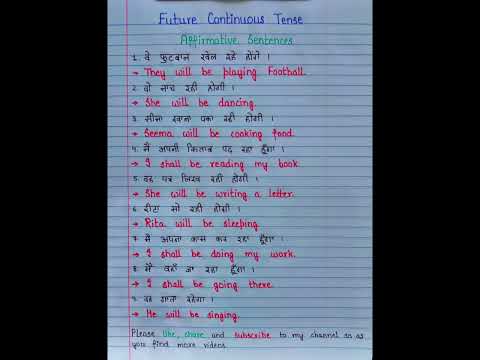 Future Continuous Tense
Affirmative Sentences
1. वे फुटबाल खेल रहे होंगे ।
→ They will be playing Football.
2. वो नाच रही होगी ।
→ She will be dancing.
3. सीमा खाना पका रही होगी ।
→ Seema will be cooking food.
4. मैं अपनी किताब पढ़ रहा हूँगा ।
→ I shall be reading my book.
5. वह पत्र लिख रही होगी ।
→ She will be writing a letter.
6. रीटा सो रही होगी ।
→ Rita will be sleeping.
7. मैं अपना काम कर रहा हूँगा ।
→ I shall be doing my work.
8. मैं वहाँ जा रहा हूँगा ।
→ I shall be going there.
9. वह गाता रहेगा ।
→ He will be singing.
Please like, share and subscribe to my channel so as
you find more videos.